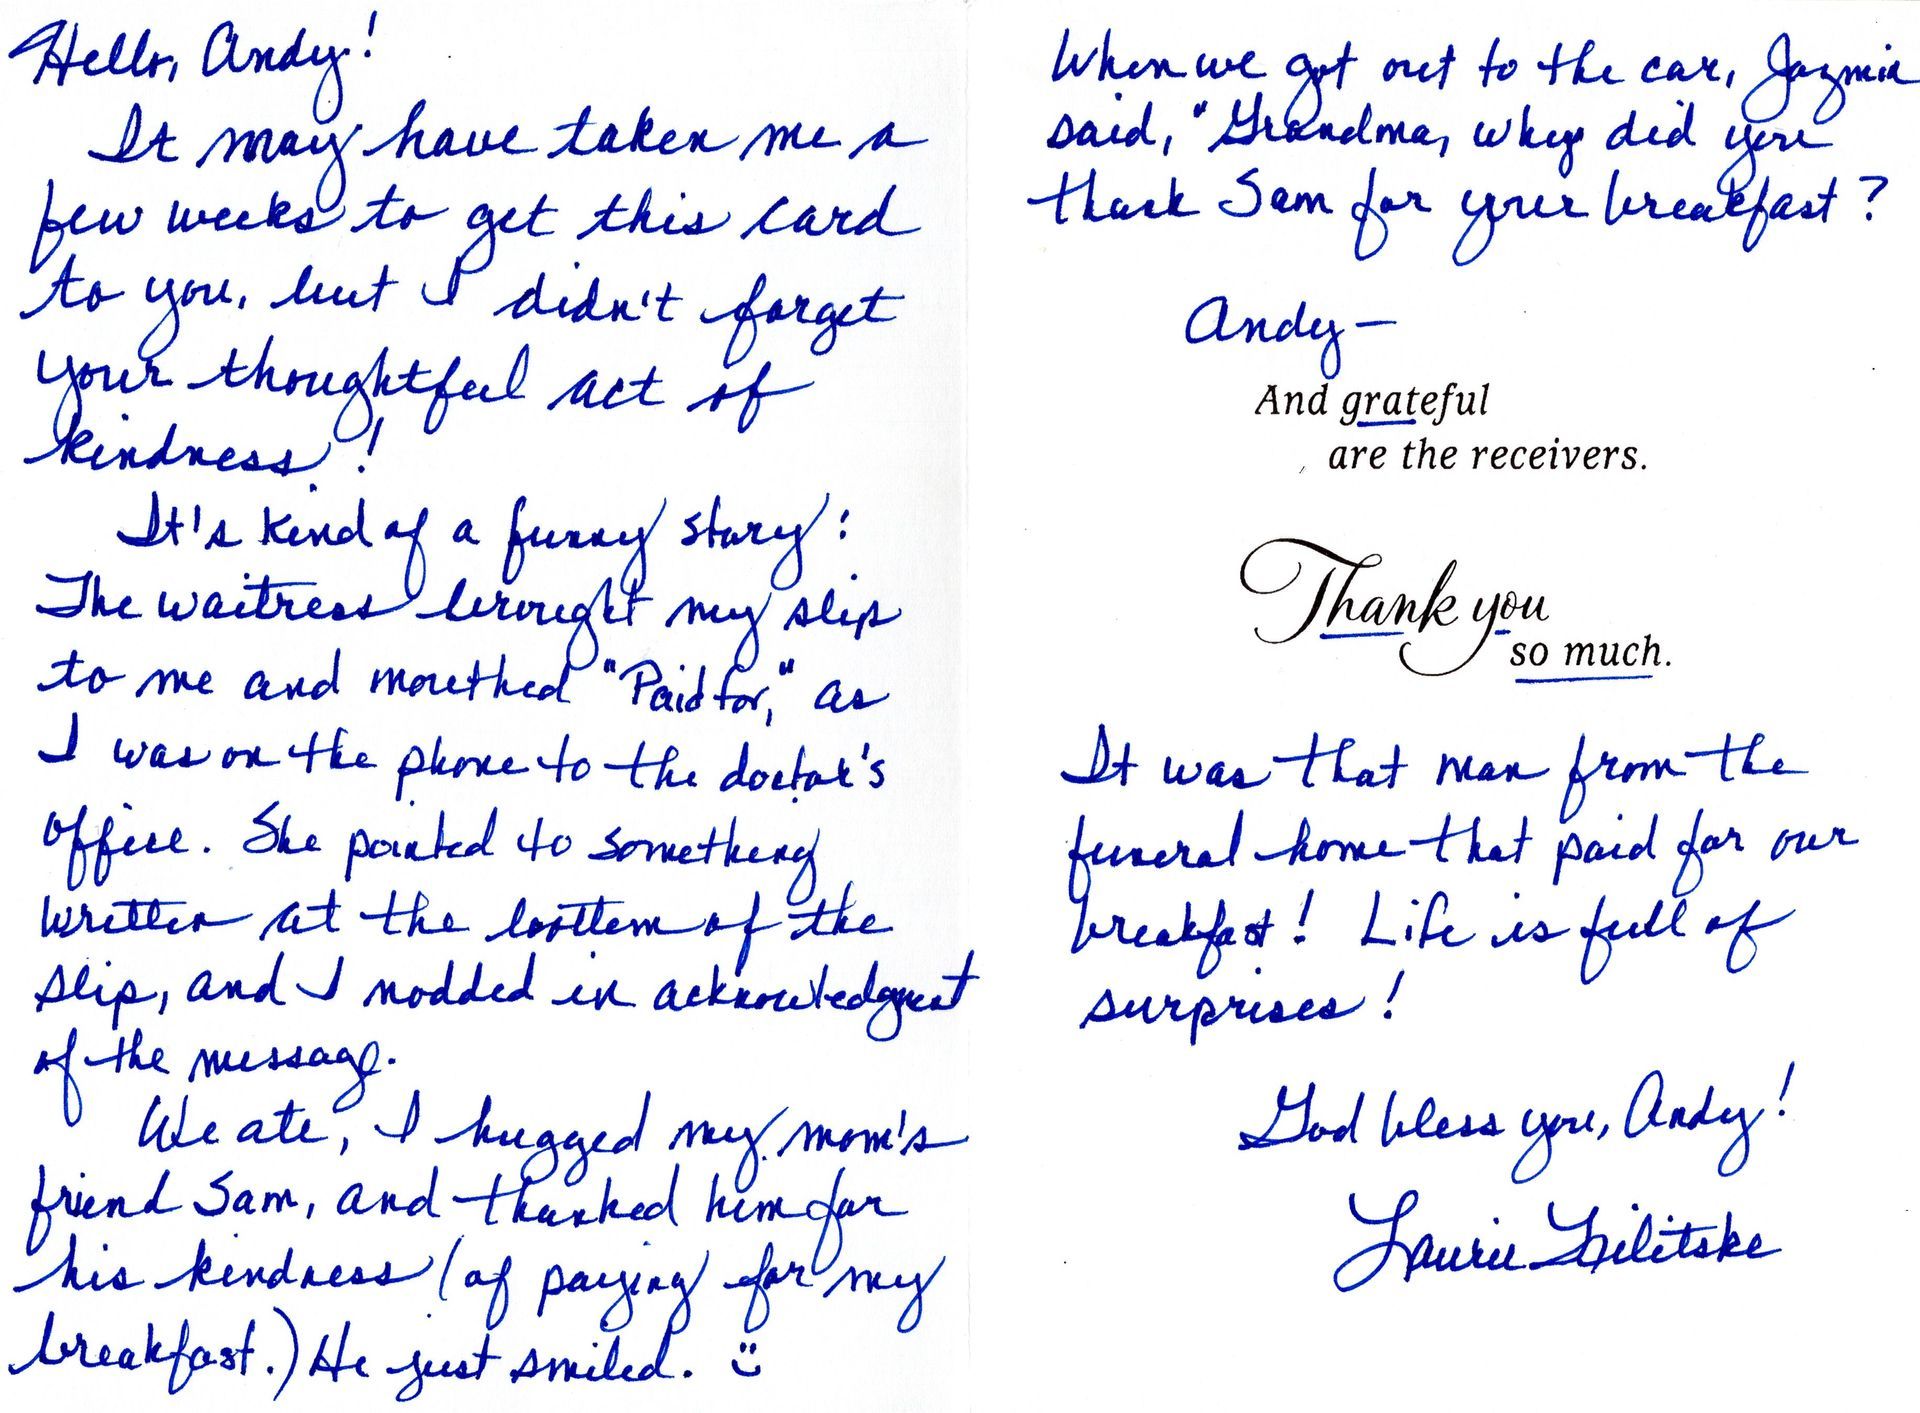 Hello, Andy!
It may have taken me a
few weeks to get this card
to you, but I didn't forget
your thoughtful act of
kindness!
It's kind of a funny story:
The waitress brought my slip
to me and mouthed "Paid for," as
I was on the phone to the doctor's
office. She pointed to something
written at the bottom of the
slip, and I nodded in acknowledgment
of the message.
We ate, I hugged my mom's
friend Sam, and thanked him for
his kindness (of paying for my
breakfast.) He just smiled. ü
When we got out to the car, Jazmin
said, "Grandma, why did you
thank Sam for your breakfast?
Andy—
And grateful
are the receivers.
Thank you
so much.
It was that man from the
funeral home that paid for our
breakfast! Life is full of
surprises!
God bless you, Andy!
Laurie